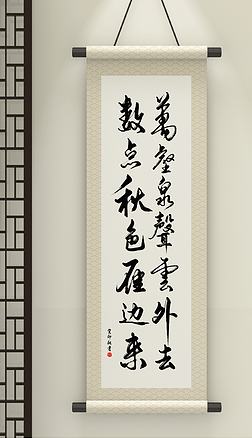 萬壑泉聲雲外去
數点秋色雁边来